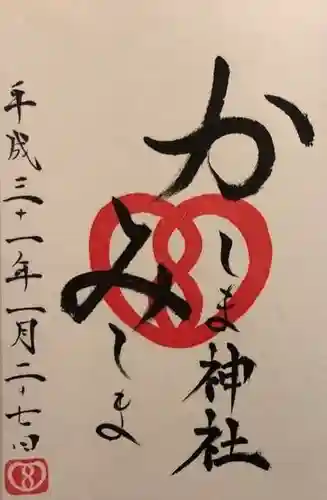 かしま神社
みしま
平成三十一年一月二十七日